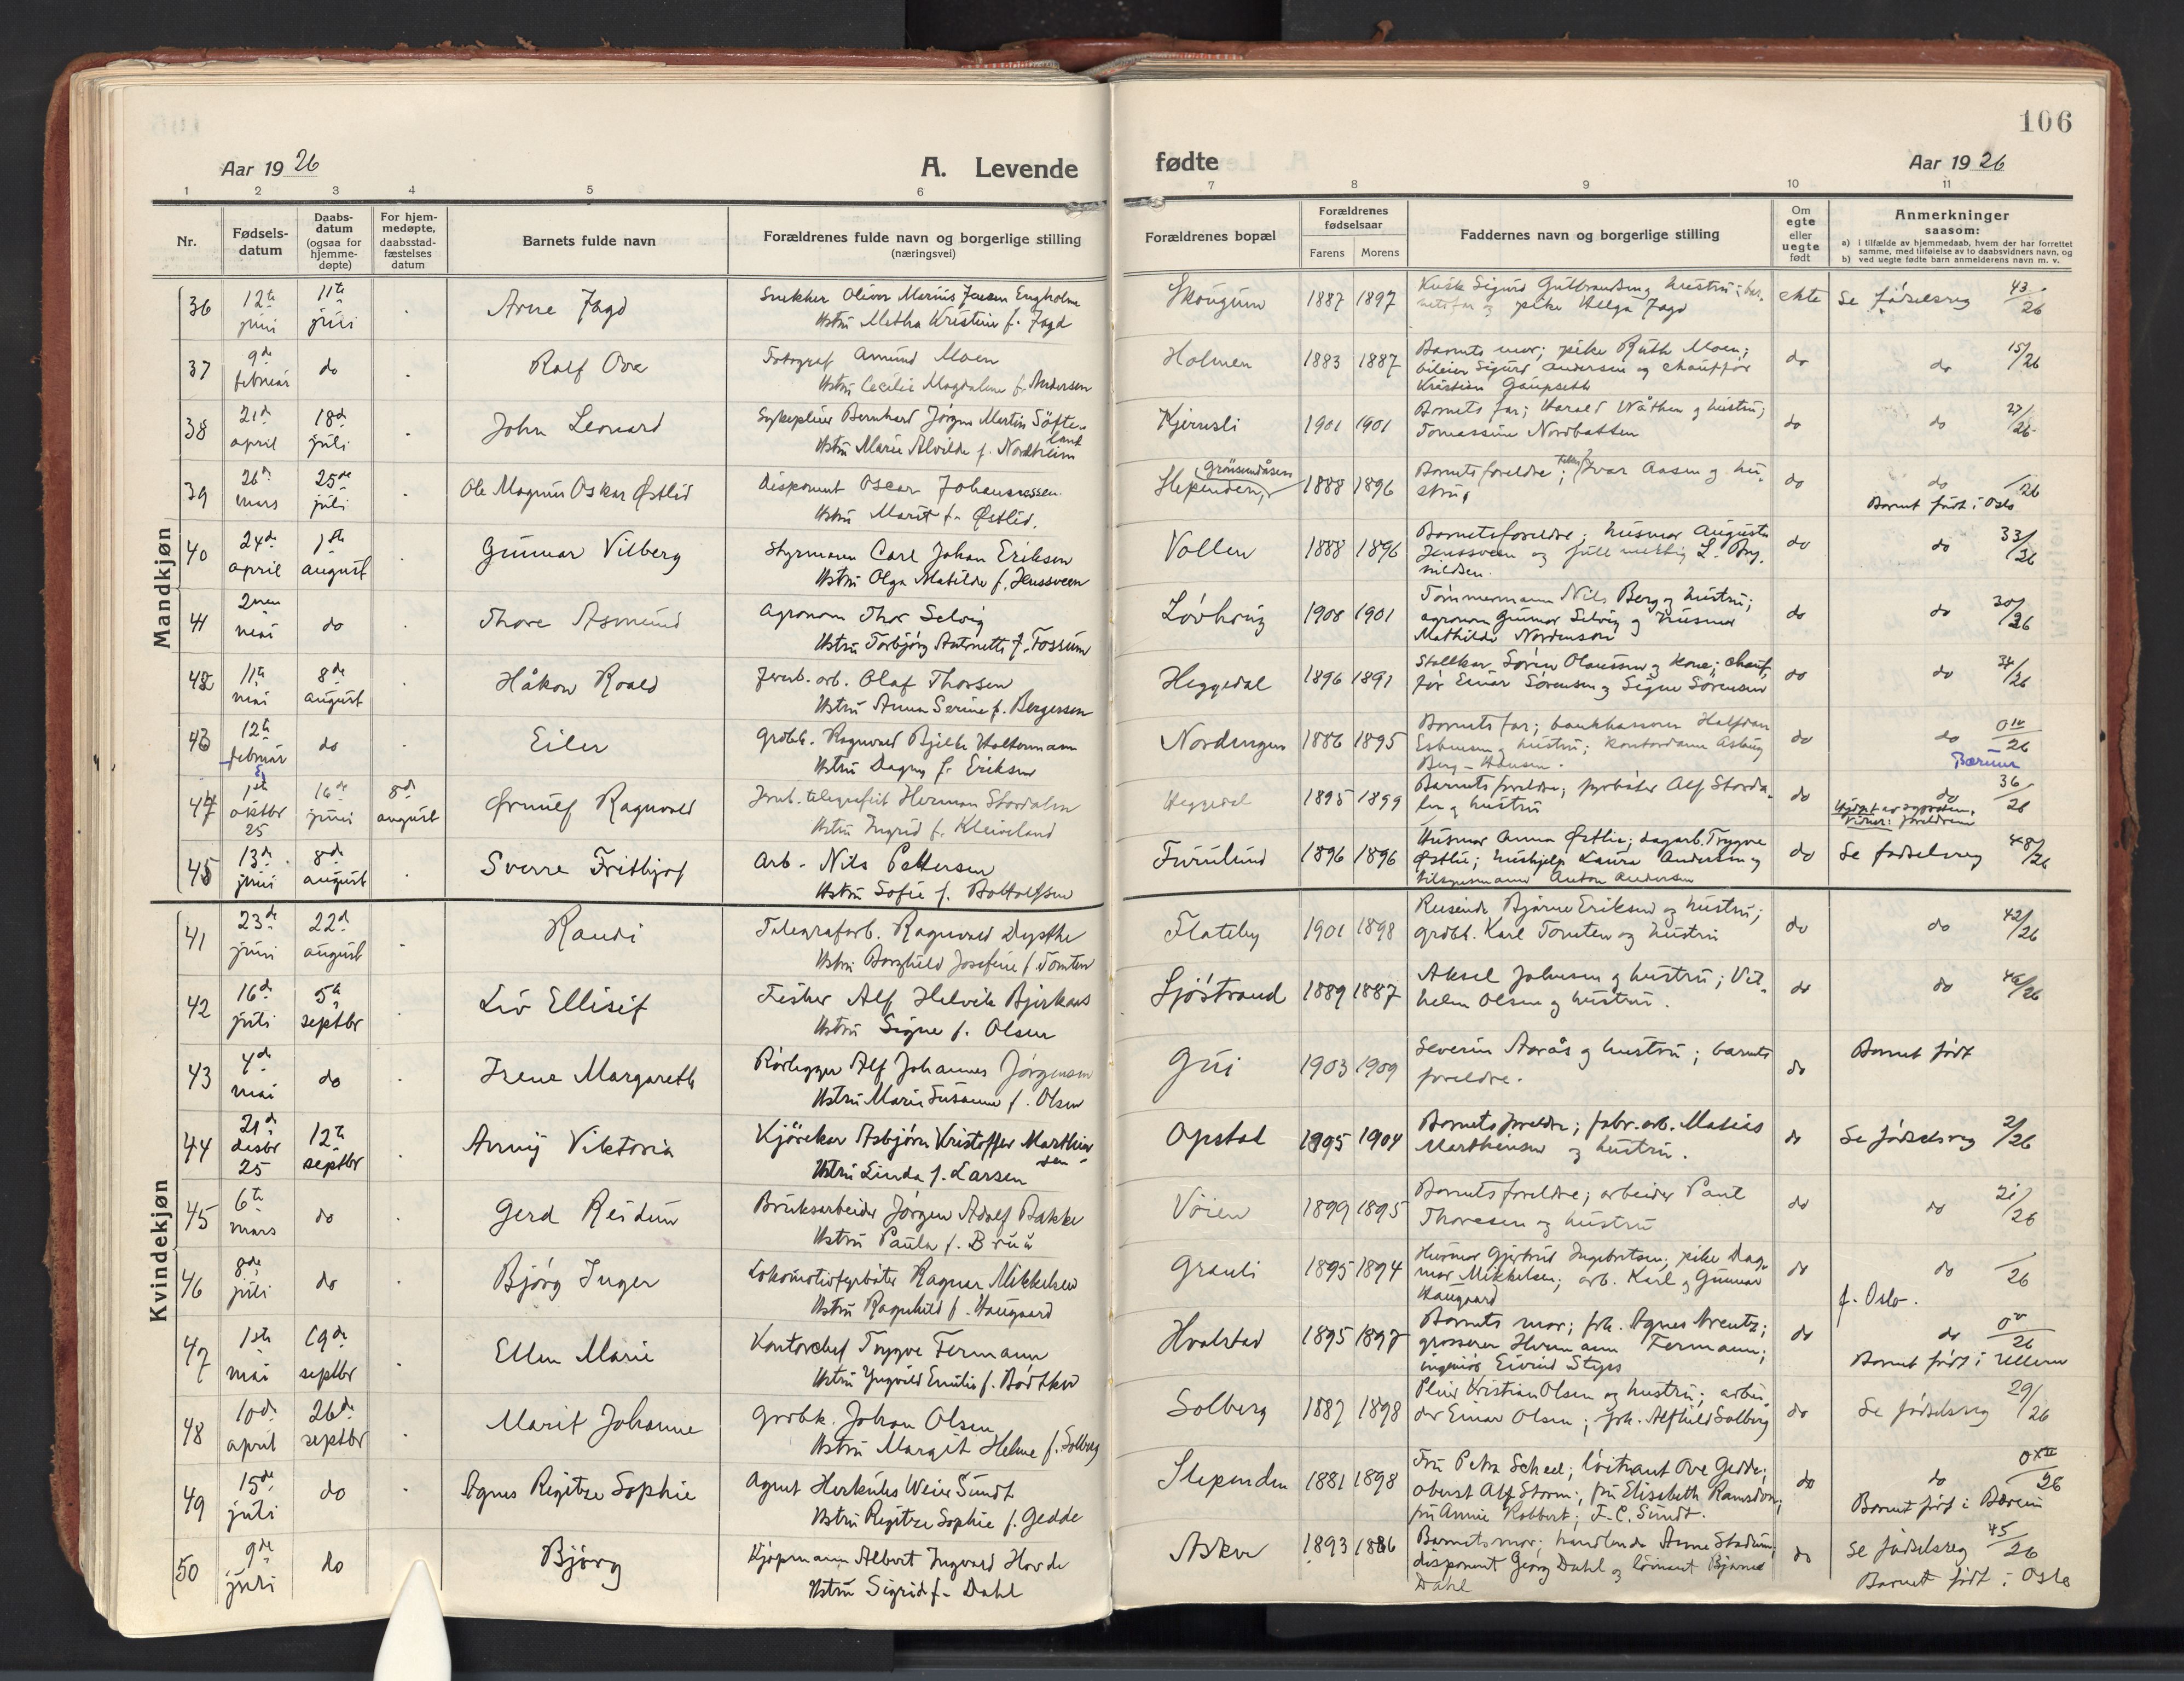 106
Aar 1926
A. Levende
fødte
Aar 1926
1 2 3 4 5 6 7 8 9 10 11
Nr.
Fødsels-
datum
Daabs-
datum
(ogsaa for
hjemme-
døpte)
For hjem-
medøpte,
daabsstad-
fæstelses
datum
Barnets fulde navn
Forældrenes fulde navn og borgerlige stilling
(næringsvei)
Forældrenes bopæl
Forældrenes
fødselsaar
Farens Morens
Faddernes navn og borgerlige stilling
Om
egte
eller
uegte
født
Anmerkninger
saasom:
a) i tilfælde av hjemmedaab, hvem der har forrettet
samme, med tilføielse av to daabsvidners navn, og
b) ved uegte fødte barn anmelderens navn m. v.
Mandkjøn
36 12te juni 11te juli Arne Jagd
Snekker Oliver Marius Jensen Engholm
Hstru Metha Kristine f. Jagd
Skougum 1887 1897
Kusk Sigurd Gulbrandsen g hustru; bar-
netsfar og pike Helga Jagd
ekte Se fødselsreg 43/26
37 9de februar do Rolf Ove
Fotograf Amund Moen
Hstru Cecilie Magdalene f. Andersen
Holmen 1883 1887
Barnets mor; pike Ruth Moen;
bileier Sigurd Andersen og chauffør
Kristian Gaupseth
do do 15/26
38 21de april 18de juli John Leonard
Sykepleier Bernhard Jørgen Martin Søfte-
land
Hstru Marie Alvilde f. Nordheim
Kjernsli 1901 1901
Barnets far; Harald Wåthen g hustru;
Tomassine Nordbakken
do do 27/26
39 26de mars 25de juli Ole Magnus Oskar Østlid
Disponent Oscar Johannessen
Hstru Marit f. Østlid.
Grønsundåsen
Slependen 1888 1896
Barnets foreldre; Ivar Aasen og hu-
stru
do do /26
Barnet født i Oslo
40 24de april 1ste august Gunnar Vilberg
Styrmann Carl Johan Eriksen
Hstru Olga Matilde f. Henssveen
Vollen 1888 1896
Barnets foreldre; husmor Augusta
Henssveen og fullmektig L. Bry-
nildsen.
do do 33/26
41 2nen mai do Thore Asmund
Agronom Thor Selvig
Hstru Torbjørg Antonette f. Fossum
Løvhaug 1908 1901
Tømmermann Nils Berg og hustru;
agronom Gunnar Selvig og husmor
Mathilde Nordenson
do do 30/26
42 11te mai 8de august Håkon Roald
Jernb. arb. Olaf Thorsen
Hstru Anna Serine f. Bergersen
Heggedal 1896 1897
Stallkar Søren Olaussen g kone; chauf-
før Einar Sørensen g Signe Sørensen
do do 34/26
43 12te februar do Eiler
Grdbk. Ragnvald Bjelke Holtermann
Hstru Dagny f. Eriksen
Nordengen 1886 1895
Barnets far; bankkasserer Halfdan
Esbensen g hustru; kontordame Asbjørg
Berg-Hansen.
do do 0IV/26
Bærum
44 1ste oktbr 25 16de juni 8de august Ørnulf Ragnvald
Jernb. telegrafist Herman Stordalen
Hstru Ingrid f. Kleiveland
Heggedal 1895 1899
Barnets foreldre; fyrbøter Alf Storda-
len g hustru
do do 36/26
Vidner: foreldrene
45 13de juni 8de august Sverre Fritbjof
Arb. Nils Pettersen
Hstru Sofie f. Bottolfsen
Furulund 1896 1896
Husmor Anna Østlie; dagarb. Trygve
Østlie; hushjelp Laura Andersen g
tilsynsmann Anton Andersen
do Se fødselsreg 48/26
Kvindekjøn
41 23de juni 22de august Randi
Telegrafarb. Ragnvald Dypthe
Hstru Borghild Josefine f. Tomten
Flateby 1901 1898
Reisende Bjarne Eriksen og hustru;
grdbk. Karl Tomten og hustru
do do 42/26
42 16de juli 5te septbr Liv Ellisif
Fisker Alf Helvik Bjerkaas
Hstru Signe f. Olsen
Sjøstrand 1889 1887
Aksel Johnsen g hustru; Vil-
helm Olsen g hustru.
do do 46/26
43 4de mai do Irene Margareth
Rørlegger Alf Johannes Jørgensen
Hstru Marie Susanne f. Olsen
Gui 1903 1909
Severin Aarås g hustru; barnets
foreldre.
do Barnet født
44 21de desbr 25 12te septbr Annij Viktoria
Kjørekar Asbjørn Kristoffer Marthin-
sen
Hstru Linda f. Larsen
Opstad 1895 1904
Barnets foreldre; fabr. arb. Matias
Marthinsen og hustru.
do Se fødselsreg 2/26
45 6te mars do Gerd Reidun
Bruksarbeider Jørgen Adolf Bakke
Hstru Paula f. Bruå
Vøien 1899 1895
Barnets foreldre; arbeider Paul
Thoresen og hustru
do do 21/26
46 8de juli do Bjørg Inger
Lokomotivfyrbøter Ragnar Mikkelsen
Hstru Ragnhild f. Haugaard
Grauli 1895 1894
Husmor Gjertrud Ingebrtsen; pike Dag-
mar Mikkelsen; arb. Karl g Gunnar
Haugaard
do do /26
f. Oslo.
47 1ste mai 19de septbr Ellen Marie
Kontorchef Trygve Fermann
Hstru Yngvild Emilie f. Bødtker
Hvalstad 1895 1897
Barnets mor; frk. Agnes Arentz;
grosserer Hermann Fermann;
ingeniør Eivind Styps
do do 0V/26
Barnet født i Ullern
48 10de april 26de septbr Marit Johanne
Grdbk. Johan Olsen
Hstru Margit Helene f. Solberg
Solberg 1887 1898
Pleier Kristian Olsen og hustru; arbei-
der Einar Olsen; frk. Alfhild Solberg
do Se fødselsreg 29/26
49 15de juli do Agnes Regitze Sophie
Agent Herkules Weier Sundt
Hstru Regitze Sophie f. Gedde
Slependen 1881 1898
Fru Petra Scheel; løitnant Ove Gedde;
oberst Alf Storm; fru Elisabeth Ramsdon;
fru Annie Robbert; F. C. Sundt.
do do 0XII/26
Barnet født i Bærum
50 9de juni do Bjørg
Kjøpmann Albert Ingvard Hovde
Hstru Sigrid f. Dahl
Asker 1893 1886
Barnets mor; handlende Anne Stadum;
disponent Georg Dahl og løitnant Bjarne
Dahl
do Se fødselsreg 45/26
Barnet født i Oslo